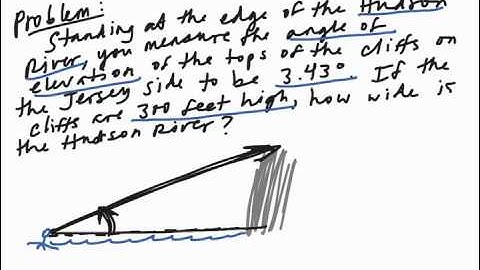 Problem:
Standing at the edge of the Hudson
River, you measure the angle of
elevation of the tops of the cliffs on
the Jersey side to be 3.43°. If the
cliffs are 300 feet high, how wide is
the Hudson River?